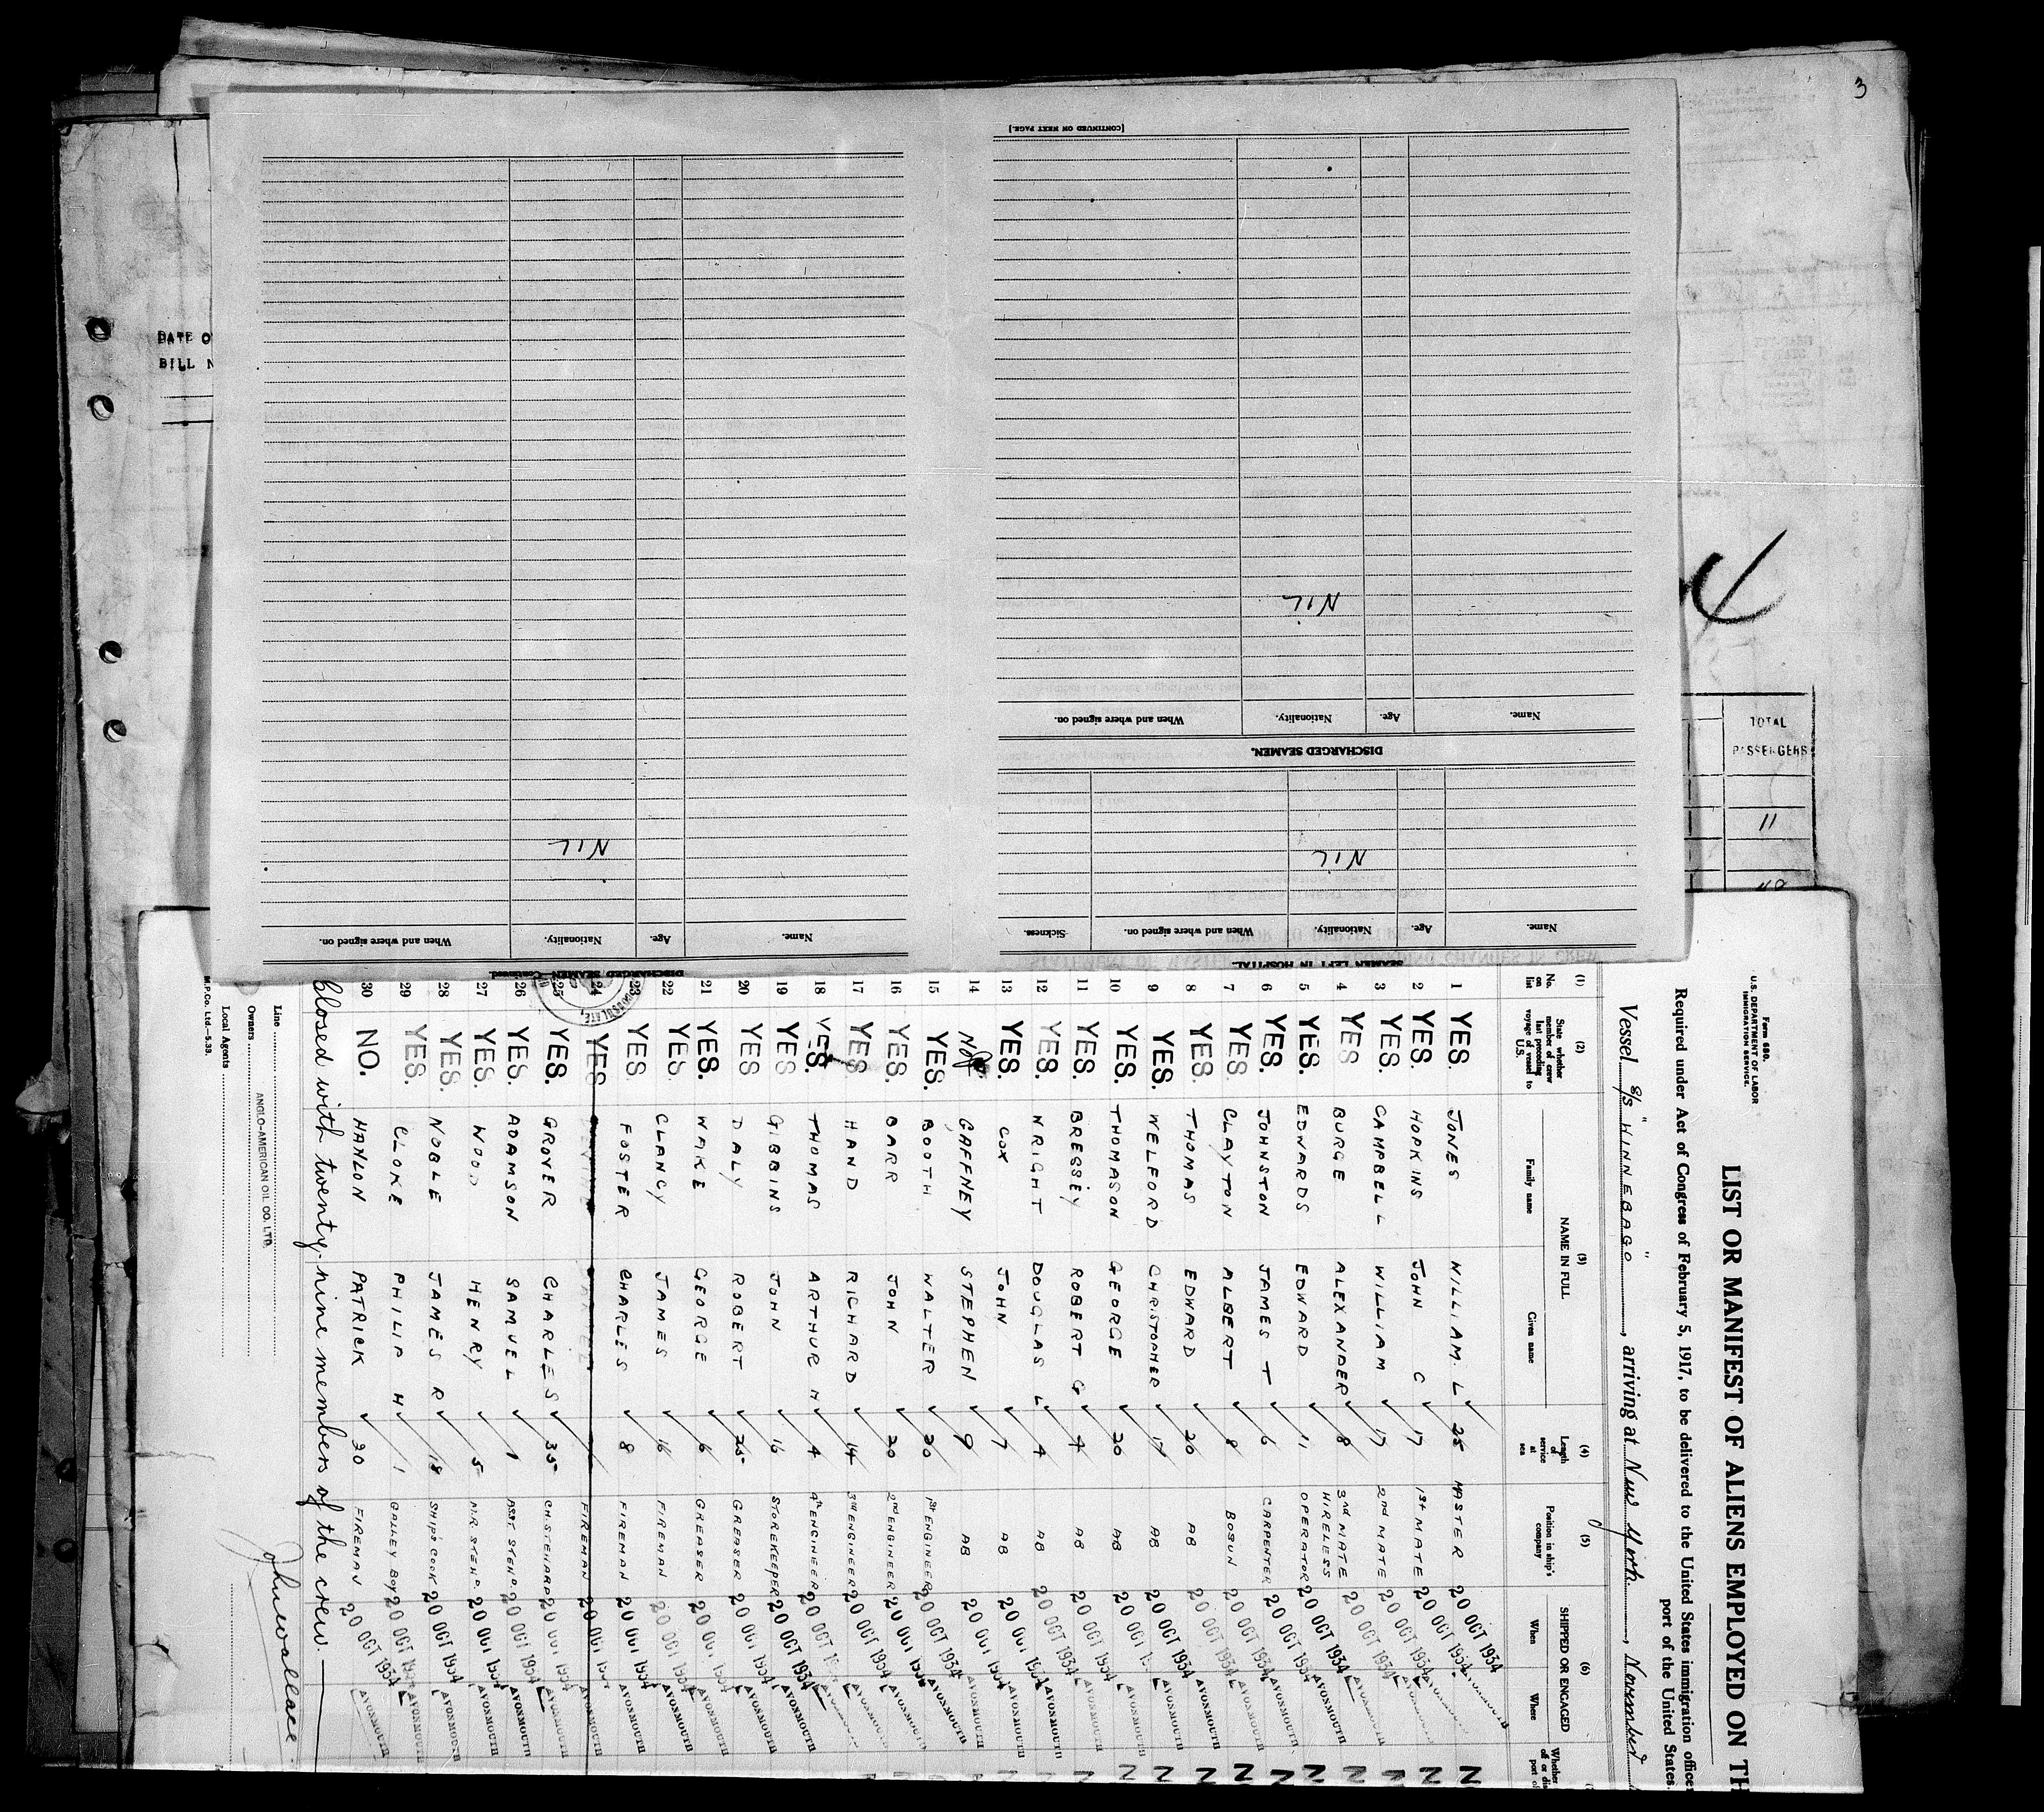 3
DATE O
BILL N
[CONTINUED ON NEXT PAGE.]
NIL
Name. Age. Nationality. When and where signed on.
DISCHARGED SEAMEN.
NIL
Name. Age. Nationality. When and where signed on. Sickness.
SEAMEN LEFT IN HOSPITAL.
NIL
Name. Age. Nationality. When and where signed on.
DISCHARGED SEAMEN—Continued
TOTAL
PASSENGERS
11
Form 680.
U.S. DEPARTMENT OF LABOR
IMMIGRATION SERVICE.
LIST OR MANIFEST OF ALIENS EMPLOYED ON TH
Required under Act of Congress of February 5, 1917, to be delivered to the United States immigration officer
port of the United States.
Vessel S/S "WINNEBAGO", arriving at New York, November
(1) (2) (3) (4) (5) (6)
No. on list State whether member of crew last preceding voyage of vessel to U.S. NAME IN FULL Family name Given name Length of service at sea Position in ship's company SHIPPED OR ENGAGED When Where Whether
1 YES. JONES WILLIAM. L 25 MASTER 20 OCT 1934 AVONMOUTH
2 YES. HOPKINS JOHN C 17 1st MATE 20 OCT 1934 AVONMOUTH
3 YES. CAMPBELL WILLIAM 17 2nd MATE 20 OCT 1934 AVONMOUTH
4 YES BURGE ALEXANDER 8 3rd MATE 20 OCT 1934 AVONMOUTH
5 YES. EDWARDS EDWARD 11 WIRELESS OPERATOR 20 OCT 1934 AVONMOUTH
6 YES. JOHNSTON JAMES T 6 CARPENTER 20 OCT 1934 AVONMOUTH
7 YES. CLAYTON ALBERT 8 BOSUN 20 OCT 1934 AVONMOUTH
8 YES. THOMAS EDWARD 20 AB 20 OCT 1934 AVONMOUTH
9 YES. WELFORD CHRISTOPHER 17 AB 20 OCT 1934 AVONMOUTH
10 YES. THOMASON GEORGE 20 AB 20 OCT 1934 AVONMOUTH
11 YES. BRESSEY ROBERT G 4 AB 20 OCT 1934 AVONMOUTH
12 YES. WRIGHT DOUGLAS L 4 AB 20 OCT 1934 AVONMOUTH
13 YES. COX JOHN 7 AB 20 OCT 1934 AVONMOUTH
14 No GAFFNEY STEPHEN 9 AB 20 OCT 1934 AVONMOUTH
15 YES. BOOTH WALTER 20 1st ENGINEER 20 OCT 1934 AVONMOUTH
16 YES BARR JOHN 20 2nd ENGINEER 20 OCT 1934 AVONMOUTH
17 YES HAND RICHARD 14 3rd ENGINEER 20 OCT 1934 AVONMOUTH
18 YES. THOMAS ARTHUR H 4 4th ENGINEER 20 OCT 1934 AVONMOUTH
19 YES GIBBINS JOHN 16 STOREKEEPER 20 OCT 1934 AVONMOUTH
20 YES DALY ROBERT 25 GREASER 20 OCT 1934 AVONMOUTH
21 YES. WAKE GEORGE 6 GREASER 20 OCT 1934 AVONMOUTH
22 YES CLANCY JAMES 16 FIREMAN 20 OCT 1934 AVONMOUTH
23 YES FOSTER CHARLES 8 FIREMAN 20 OCT 1934 AVONMOUTH
24 YES. FIREMAN 20 OCT 1934 AVONMOUTH
25 YES. GROVER CHARLES 35 CH. STEWARD 20 OCT 1934 AVONMOUTH
26 YES. ADAMSON SAMUEL 1 ASST. STEWD. 20 OCT 1934 AVONMOUTH
27 YES. WOOD HENRY 5 20 OCT 1934 AVONMOUTH
28 YES. NOBLE JAMES R 18 SHIP'S COOK 20 OCT 1934 AVONMOUTH
29 YES. CLOKE PHILIP H 1 GALLEY BOY 20 OCT 1934 AVONMOUTH
30 NO. HANLON PATRICK 20 FIREMAN 20 OCT 1934 AVONMOUTH
Closed with twenty-nine members of the crew.
John Wallace.
Line
Owners ANGLO-AMERICAN OIL CO. LTD.
Local Agents
M.P.Co. Ltd.—5.33.